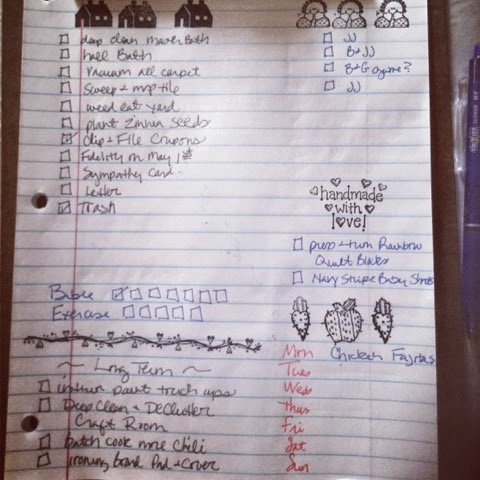 deep clean master Bath
hall Bath
Vacuum all carpet
Sweep + mop tile
weed eat yard
plant Zinnia seeds
clip + File Coupons
Fidelity on May 1st
Sympathy Card
Letter
Trash
JJ
B+JJ
B+G game?
JJ
handmade
with
love!
press + turn Rainbow
Quilt Blocks
Navy Stripe Shorts
Bible
Exercise
Long Term
interior paint touch ups
Deep Clean + Declutter
Craft Room
batch cook more Chili
ironing board Pad + Cover
Mon Chicken Fajitas
Tues
Wed
Thus
Fri
Sat
Sun